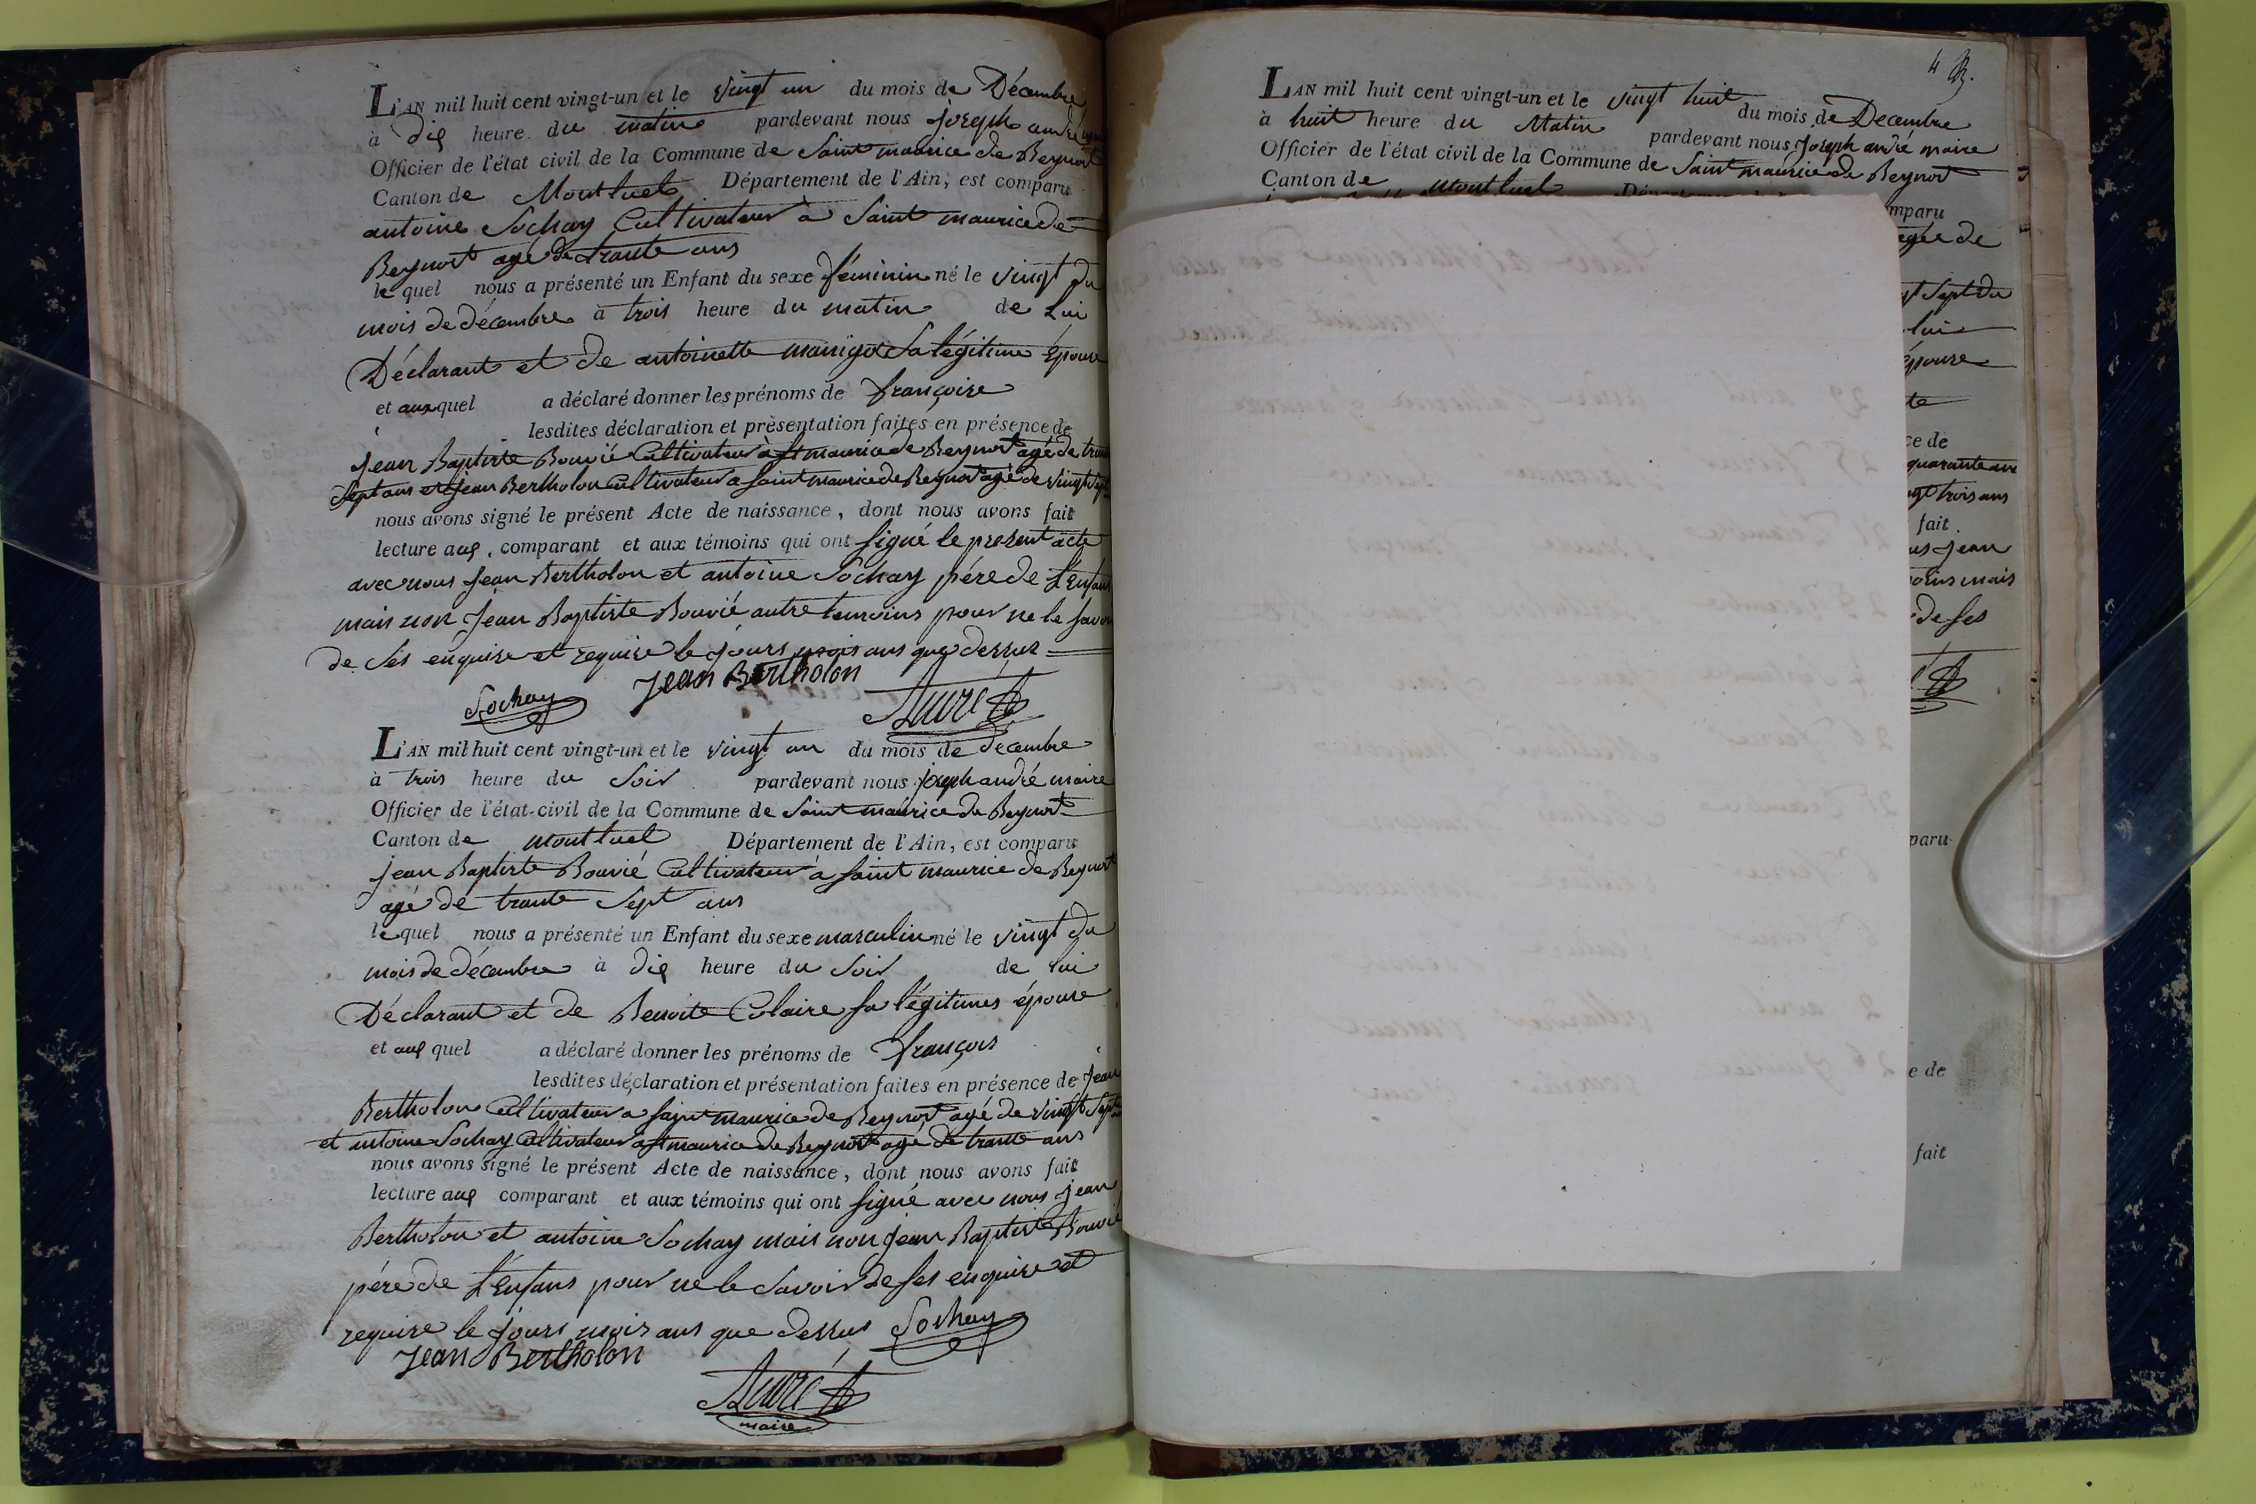 L'AN mil huit cent vingt-un et le vingt un du mois de Décembre
à dix heure du matin pardevant nous joseph andré
Officier de l'état civil de la Commune de Saint maurice de Beynost
Canton de Montluel Département de l'Ain, est comparu
antoine Sochay Cultivateur à Saint maurice de
Beynost agé de trante ans
le quel nous a présenté un Enfant du sexe féminin né le vingt du
mois de décembre à trois heure du matin de Lui
Déclarant et de antoinette manigot Sa légitime Epouse
et auxquel a déclaré donner les prénoms de françoise
lesdites déclaration et présentation faites en présence de
jean Baptiste Bouvié Cultivateur à St maurice de Beynost agé de trante
Sept ans et jean Bertholon Cultivateur a Saint maurice de Beynost agé de vingt Sept
nous avons signé le présent Acte de naissance, dont nous avons fait
lecture aux comparant et aux témoins qui ont signé le present acte
avec nous jean Bertholon et antoine Sochay pére de L'Enfans
mais non jean Baptiste Bouvié autre temoins pour ne le savoir
de Ses enquise et requise le jours mois ans que dessus
Sochay Jean Bertholon André
L'AN mil huit cent vingt-un et le vingt un du mois de decembre
à trois heure du Soir pardevant nous joseph andré maire
Officier de l'état-civil de la Commune de Saint maurice de Beynost
Canton de montluel Département de l'Ain, est comparu
jean Baptiste Bouvié Cultivateur à Saint maurice de Beynost
agé de trante Sept ans
le quel nous a présenté un Enfant du sexe masculin né le vingt du
mois de décembre à dix heure du Soir de lui
Déclarant et de Benoite Colaire sa légitimes épouse
et aux quel a déclaré donner les prénoms de françois
lesdites déclaration et présentation faites en présence de jean
Bertholon Cultivateur a Saint maurice de Beynost agé de vingt Sept
et antoine Sochay Cultivateur a St maurice de Beynost agé de trante ans
nous avons signé le présent Acte de naissance, dont nous avons fait
lecture aux comparant et aux témoins qui ont signé avec nous jean
Bertholon et antoine Sochay mais non jean Baptiste Bouvié
pére de L'Enfans pour ne le Savoir de Ses enquise et
requise le jours mois ans que dessus Sochay
Jean Bertholon
André
maire
L'AN mil huit cent vingt-un et le vingt huit du mois de Decembre
à huit heure du Matin pardevant nous joseph andré maire
Officier de l'état civil de la Commune de Saint maurice de Beynost
Canton de montluel
mparu
agée de
gt Sept du
lui
épouse
te
ce de
quarante ans
ngt trois ans
fait
us jean
oins mais
de ses
paru
e de
fait